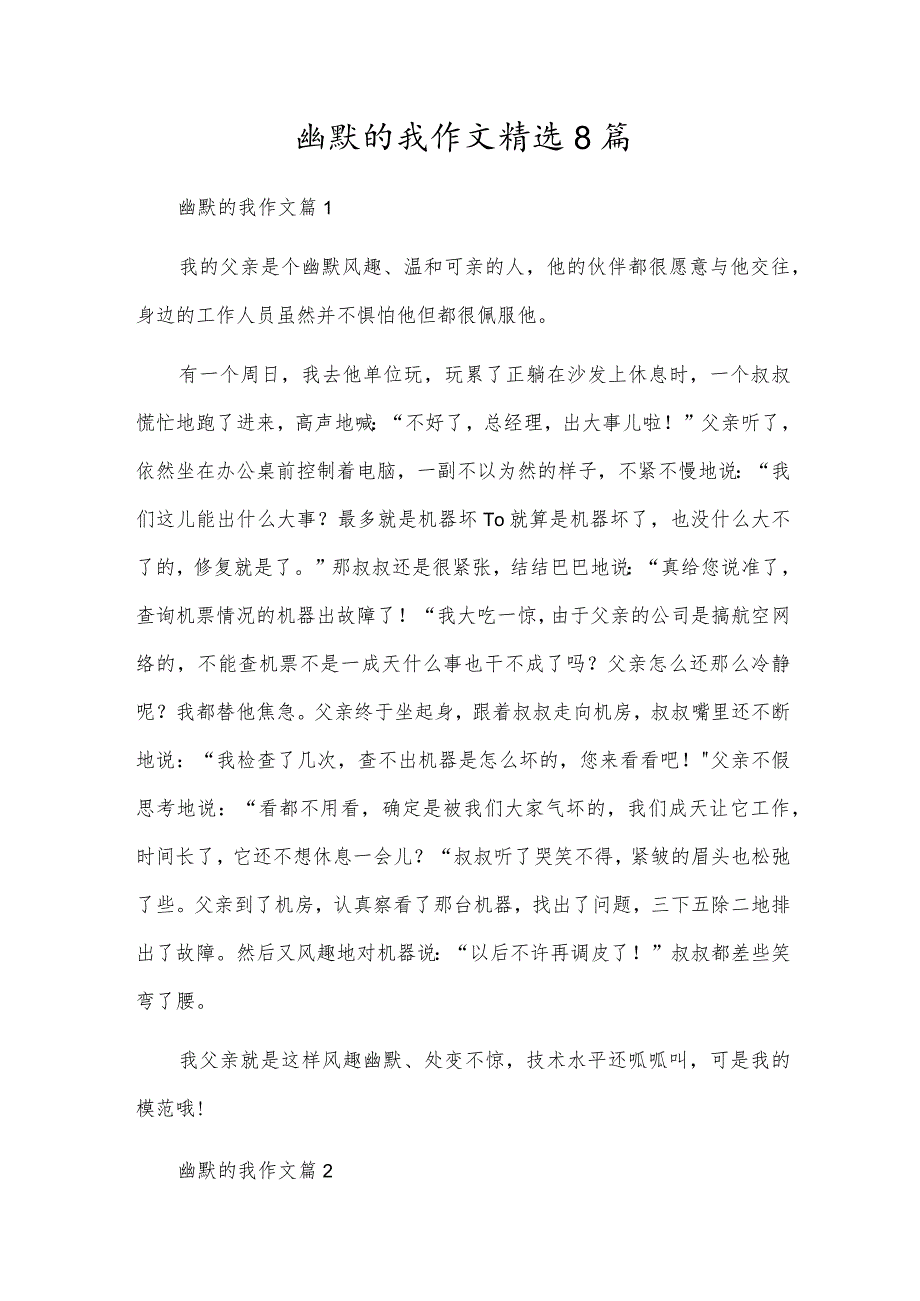 幽默的我作文精选8篇
幽默的我作文篇1
我的父亲是个幽默风趣、温和可亲的人，他的伙伴都很愿意与他交往，
身边的工作人员虽然并不惧怕他但都很佩服他。
有一个周日，我去他单位玩，玩累了正躺在沙发上休息时，一个叔叔
慌忙地跑了进来，高声地喊：“不好了，总经理，出大事儿啦！”父亲听了，
依然坐在办公桌前控制着电脑，一副不以为然的样子，不紧不慢地说：“我
们这儿能出什么大事？最多就是机器坏To就算是机器坏了，也没什么大不
了的，修复就是了。”那叔叔还是很紧张，结结巴巴地说：“真给您说准了，
查询机票情况的机器出故障了！“我大吃一惊，由于父亲的公司是搞航空网
络的，不能查机票不是一成天什么事也干不成了吗？父亲怎么还那么冷静
呢？我都替他焦急。父亲终于坐起身，跟着叔叔走向机房，叔叔嘴里还不断
地说：“我检查了几次，查不出机器是怎么坏的，您来看看吧！"父亲不假
思考地说：“看都不用看，确定是被我们大家气坏的，我们成天让它工作，
时间长了，它还不想休息一会儿？“叔叔听了哭笑不得，紧皱的眉头也松弛
了些。父亲到了机房，认真察看了那台机器，找出了问题，三下五除二地排
出了故障。然后又风趣地对机器说：“以后不许再调皮了！”叔叔都差些笑
弯了腰。
我父亲就是这样风趣幽默、处变不惊，技术水平还呱呱叫，可是我的
模范哦！
幽默的我作文篇2